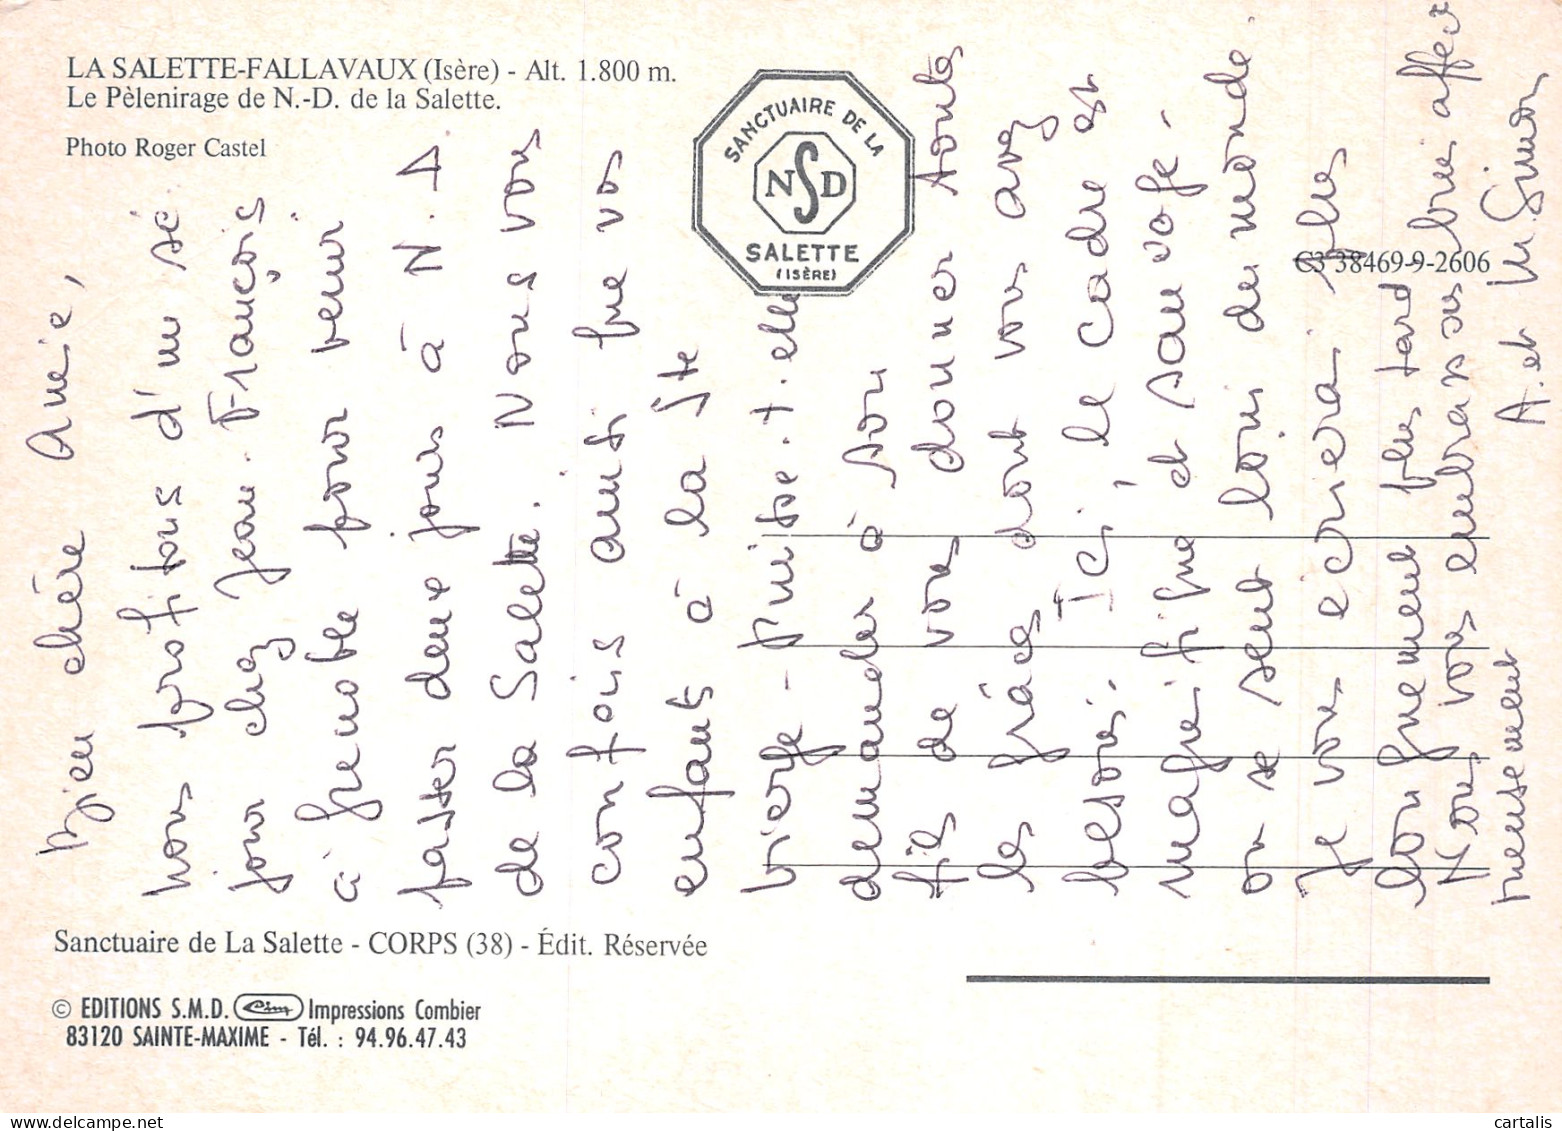 LA SALETTE-FALLAVAUX (Isère) - Alt. 1.800 m.
Le Pèlenirage de N.-D. de la Salette.
Photo Roger Castel
SANCTUAIRE DE LA
NSD
SALETTE
(ISÈRE)
C3 38469-9-2606
Bien chère Amie,
nous profitons d'un sé
jour chez Jean-François
à Grenoble pour venir
passer deux jours à N.D
de la Salette. Nous vous
confions ainsi que vos
enfants à la Ste
Vierge - Puisse-t-elle
demander à son
fils de vous donner toutes
les grâces dont vous avez
besoin. Ici, le cadre est
magnifique et sauvage.
on se sent loin du monde.
Je vous écrirai plus
longuement plus tard
Nous vous embrassons bien affec
tueusement
A. et M Simon
Sanctuaire de La Salette - CORPS (38) - Édit. Réservée
© EDITIONS S.M.D. Cim Impressions Combier
83120 SAINTE-MAXIME - Tél. : 94.96.47.43
cartalis